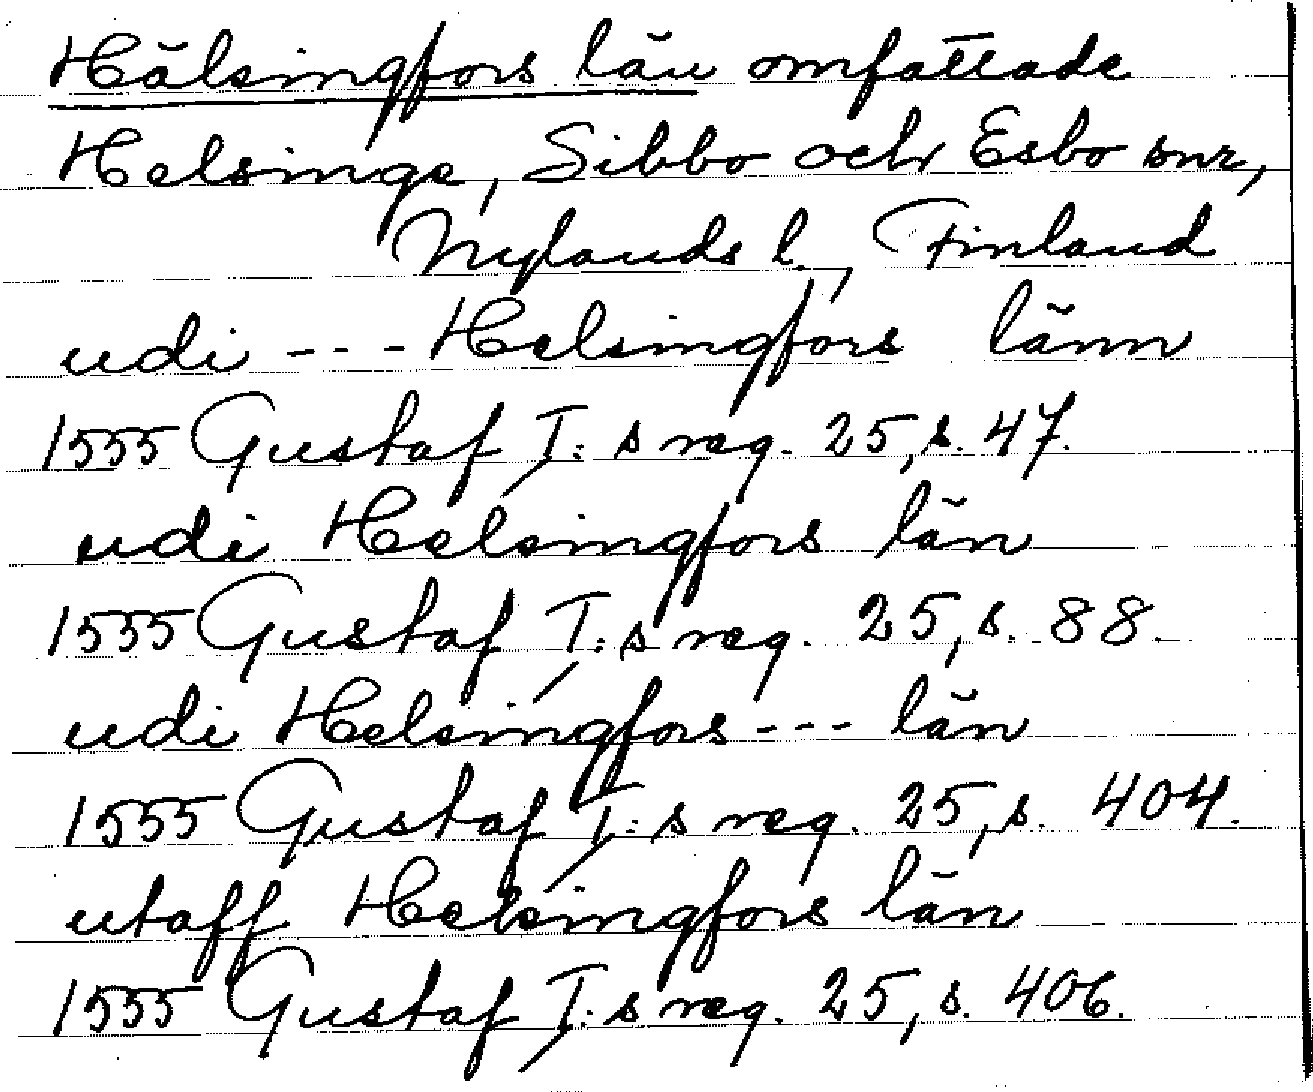 Hälsingfors län omfattade
Helsinge, Sibbo och Esbo snr,
Nylands l., Finland
udi --- Helsingfors länn
1555 Gustaf I:s reg. 25, s. 47.
udi Helsingfors län
1555 Gustaf I:s reg. 25, s. 88.
udi Helsingfors --- län
1555 Gustaf I:s reg. 25, s. 404.
utaff Helsingfors län
1555 Gustaf I:s reg. 25, s. 406.